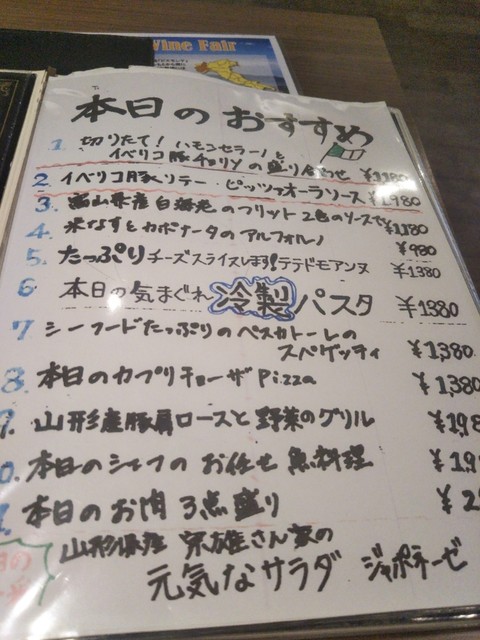 Wine Fair
本日のおすすめ
1. 切りたて！ハモンセラーノと
イベリコ豚チョリソの盛り合わせ ¥1180
2. イベリコ豚ソテー・ピッツァオーラソース ¥1980
3. 富山県産白海老のフリット 2色のソースで ¥1180
4. 米なすとカポナータのアルフォルノ ¥980
5. たっぷりチーズスライスします!テテドモアンヌ ¥1380
6 本日の気まぐれ 冷製パスタ ¥1380
7 シーフードたっぷりのペスカトーレの
スパゲッティ ¥1,380
8 本日のカプリチョーザPizza ¥1,380
9. 山形産豚肩ロースと野菜のグリル ¥198
0. 本日のシェフの お任せ魚料理 ¥19
本日のお肉 3点盛り ¥2
山形県産 宗雄さん家の
元気なサラダ ジャポネーゼ